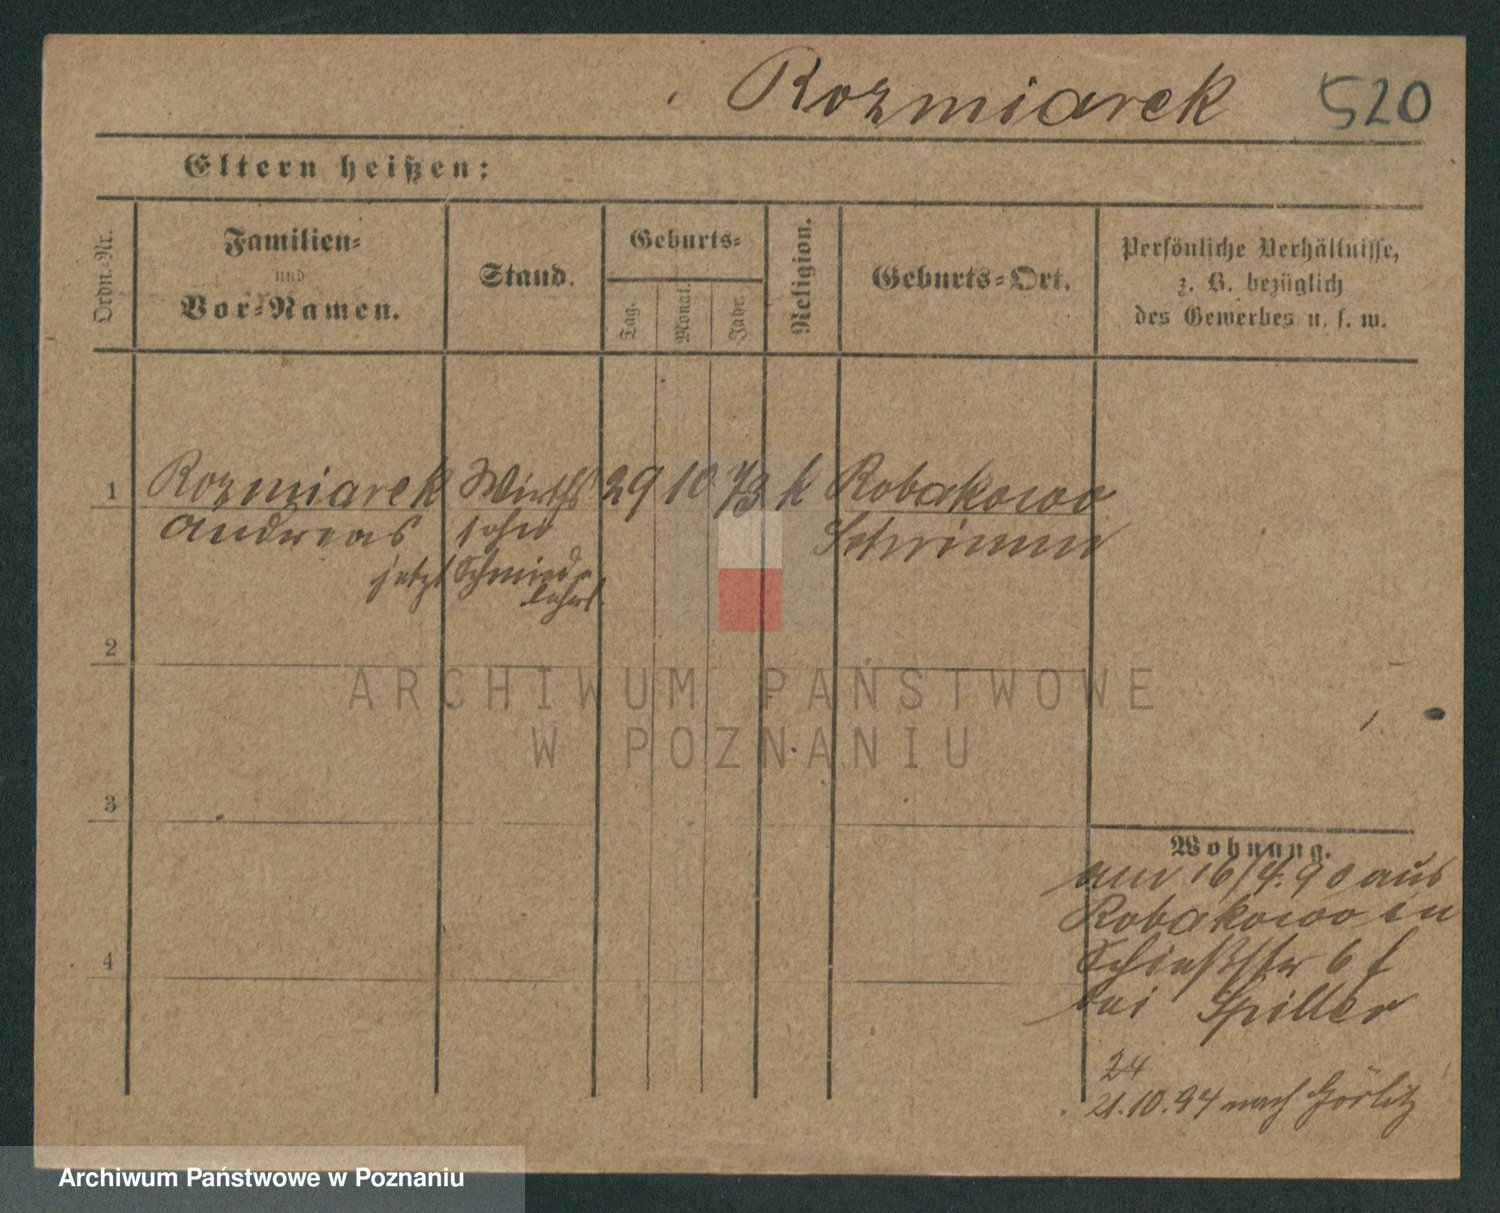 Rozmiarek 520
Eltern heißen:
Ordn.-Nr.
Familien-
und
Vor-Namen.
Stand.
Geburts-
Tag.
Monat.
Jahr.
Religion.
Geburts-Ort.
Persönliche Verhältnisse,
z. B. bezüglich
des Gewerbes u. s. w.
1 Rozmiarek Wirths 29 10 73 k Robakowo
Andreas sohn Schrimm
jetzt Schmiede
lehrl.
2
ARCHIWUM PAŃSTWOWE
W POZNANIU
3
Wohnung.
am 16/4. 90 aus
Robakowo in
4
Schießstr 6 f
bei Spiller
24
21.10.94 nach Görlitz
Archiwum Państwowe w Poznaniu